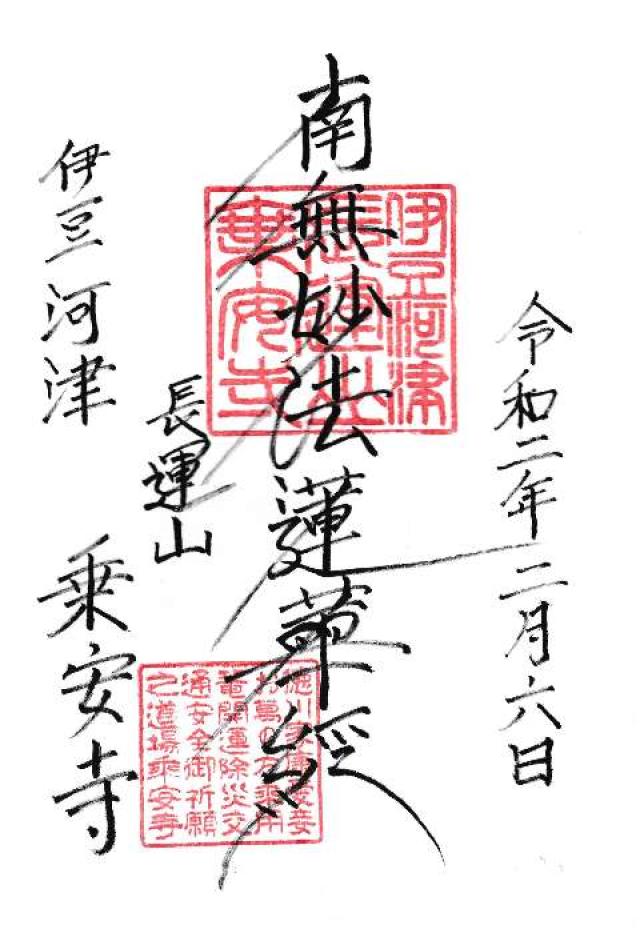 令和二年二月六日
南無妙法蓮華經
伊豆河津
長運山
乗安寺
長運山
伊豆河津 乗安寺
徳川家康愛妾
お萬の方乗用
開運除災交
通安全御祈願
之道場乗安寺